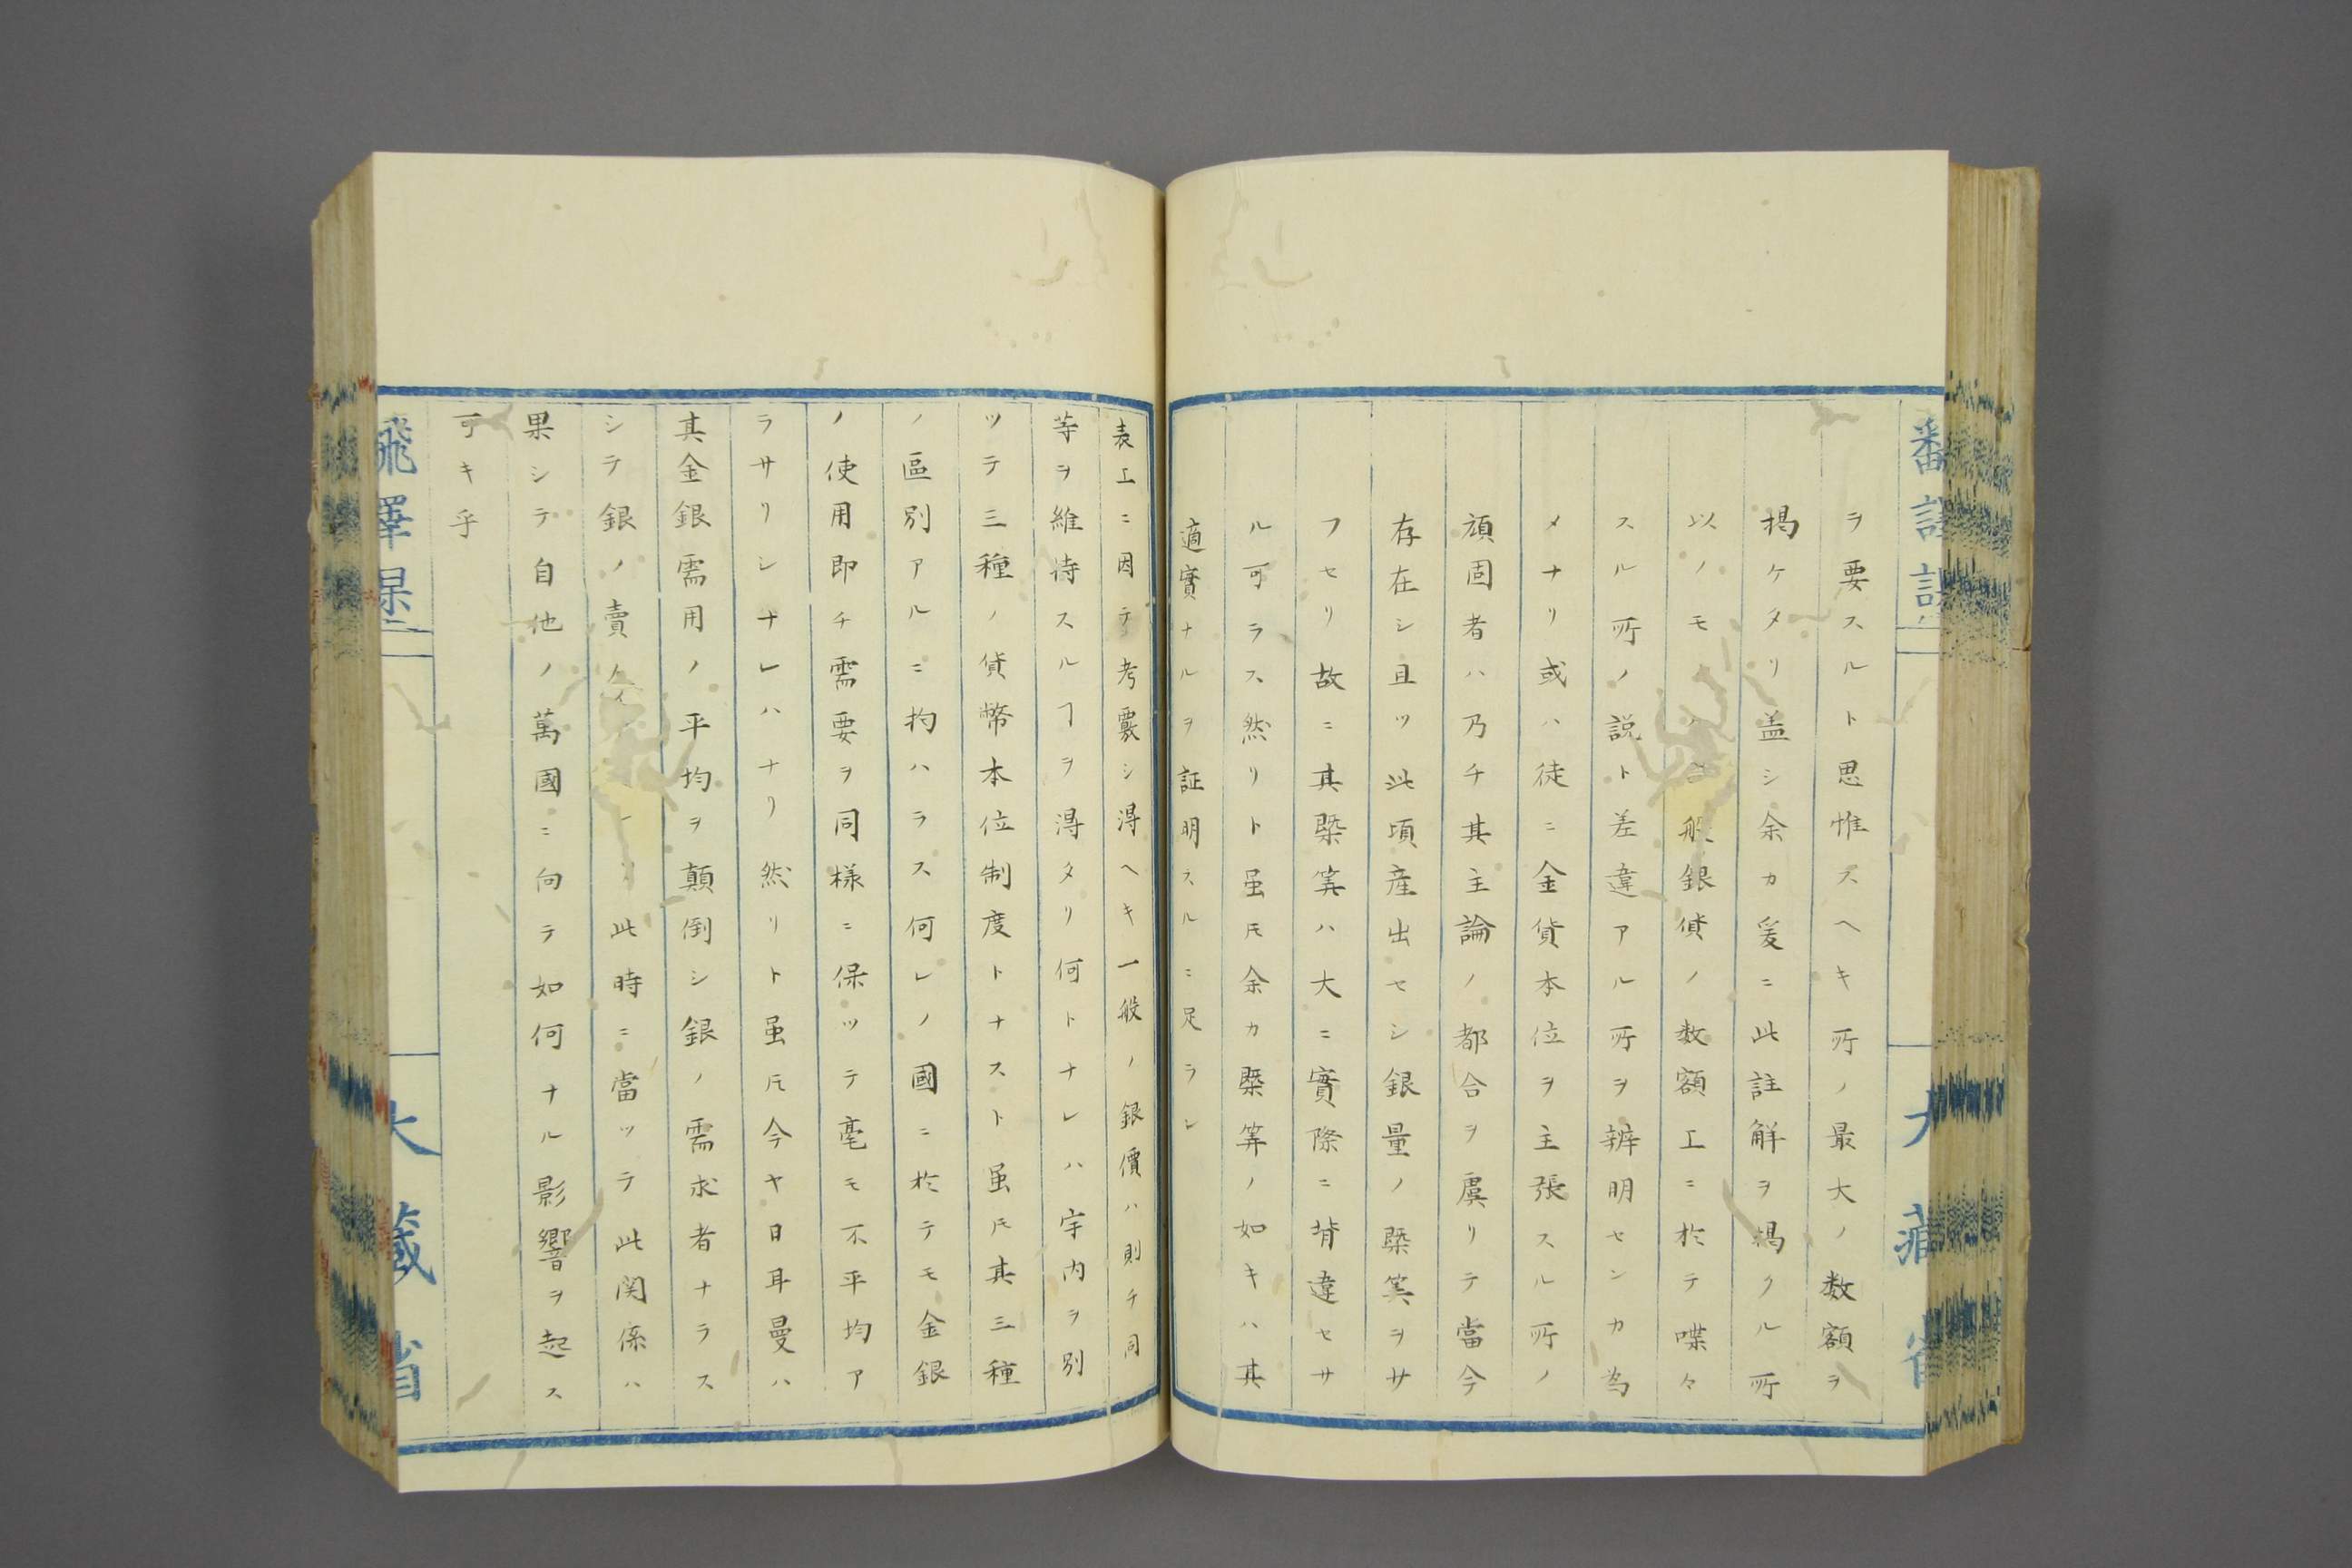 ヲ要スルト思惟スヘキ所ノ最大ノ数額ヲ
掲ケタリ盖シ余カ爰ニ此註解ヲ掲クル所
以ノモノハ一般銀貨ノ数額上ニ於テ喋々
スル所ノ説ト差違アル所ヲ辨明センカ為
メナリ或ハ徒ニ金貨本位ヲ主張スル所ノ
頑固者ハ乃チ其主論ノ都合ヲ虞リテ當今
存在シ且ツ此頃産出セシ銀量ノ槩筭ヲサ
フセリ故ニ其槩筭ハ大ニ實際ニ背違セサ
ル可ラス然リト虽𪜈余カ槩筭ノ如キハ其
適實ナルヲ証明スルニ足ラン
表上ニ因テ考覈シ得ヘキ一般ノ銀價ハ則チ同
等ヲ維持スルヿヲ得タリ何トナレハ宇内ヲ別
ツテ三種ノ貨幣本位制度トナスト虽𪜈其三種
ノ區別アルニ拘ハラス何レノ國ニ於テモ金銀
ノ使用即チ需要ヲ同様ニ保ツテ毫モ不平均ア
ラサリシナレハナリ然リト虽𪜈今ヤ日耳曼ハ
其金銀需用ノ平均ヲ顛倒シ銀ノ需求者ナラス
シテ銀ノ賣 此時ニ當ツテ此関係ハ
果シテ自他ノ萬國ニ向テ如何ナル影響ヲ起ス
可キ乎
大藏省
大藏省